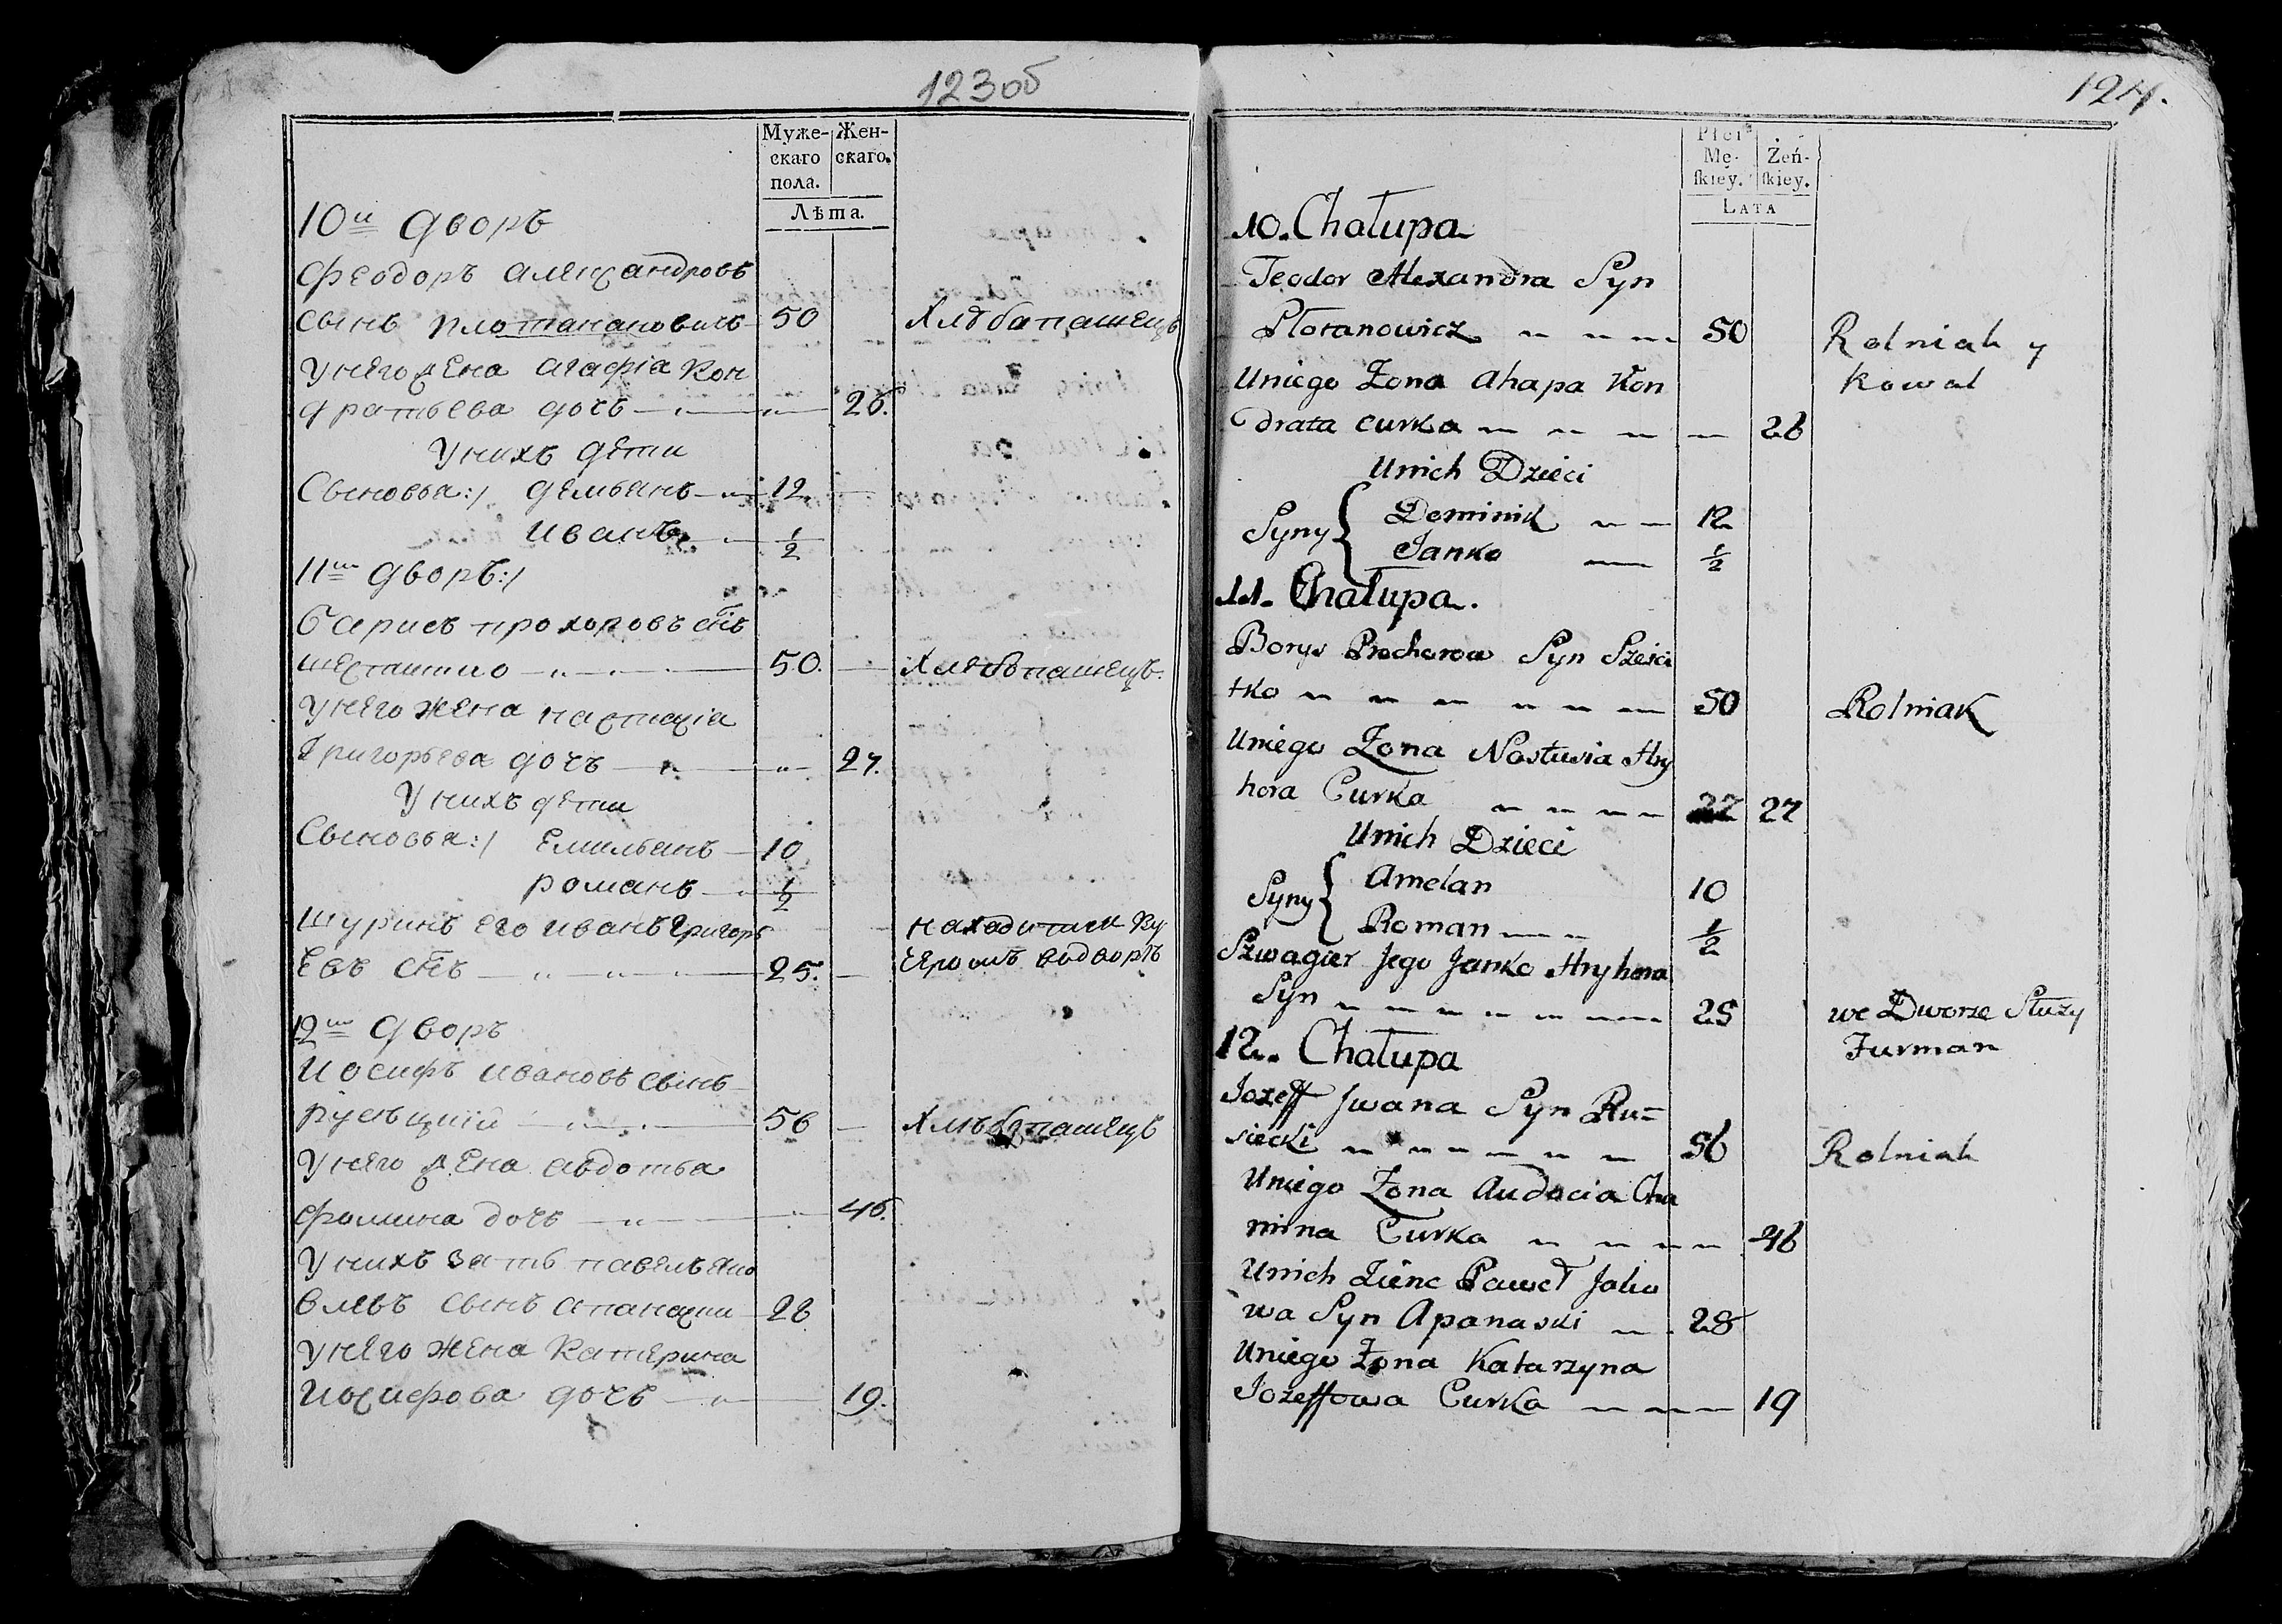 123об
Муже-
скаго
пола.
Жен-
скаго.
Лѣта.
10й дворъ
Феодоръ Александровъ
сынъ Плотанановичъ 50 Хлѣбапашецъ
У него жена Агафiа Кон
дратьева дочь 26.
У нихъ дети
Сыновьа:/ Демьянъ 12
Иванъ 1/2
11й дворъ:/
Барисъ Прохоровъ снъ
50. Хлѣбапашецъ.
У него жена Настасiа
Григорьева дочъ 27.
У нихъ дети
Сыновьа:/ Емильанъ 10
Романъ 1/2
Шуринъ его Иванъ Григорь
евъ снъ 25. находитися ку
черомъ водворѣ
12й дворъ
Иосифъ Ивановъ сынъ
Русѣцкiй 56 Хлѣбапашецъ
У него жена Авдотьа
Фомина дочъ 46.
У нихъ зать Павелъ Яко
влевъ сынъ Апанаски 28
У него жена Катерина
Иосифова дочъ 19.
124.
Płci
Mę-
ſkiey.
Żeń-
ſkiey.
LATA
10. Chałupa
Teodor Alexandra Syn
Płotanowicz 50 Rolniak y
Kowal
Uniego Zona Ahapa Kon
drata Curka 26
Unich Dzieci
Syny { Dominik 12
Janko 1/2
11. Chałupa.
Borys Prochorow Syn Szesciu
tko 50 Rolniak
Uniego Zona Nastusia Hry
hora Curka 27
Unich Dzieci
Syny { Amelan 10
Roman 1/2
Szwagier Jego Janko Hryhora
Syn 25 we Dworze Służy
Furman
12. Chałupa
Jozeff Jwana Syn Ru=
siecki 56 Rolniak
Uniego Zona Audocia Cho
mina Curka 46
Unich Zienc Paweł Jako
wa Syn Apanaski 28
Uniego Zona Katarzyna
Jozeffowa Curka 19